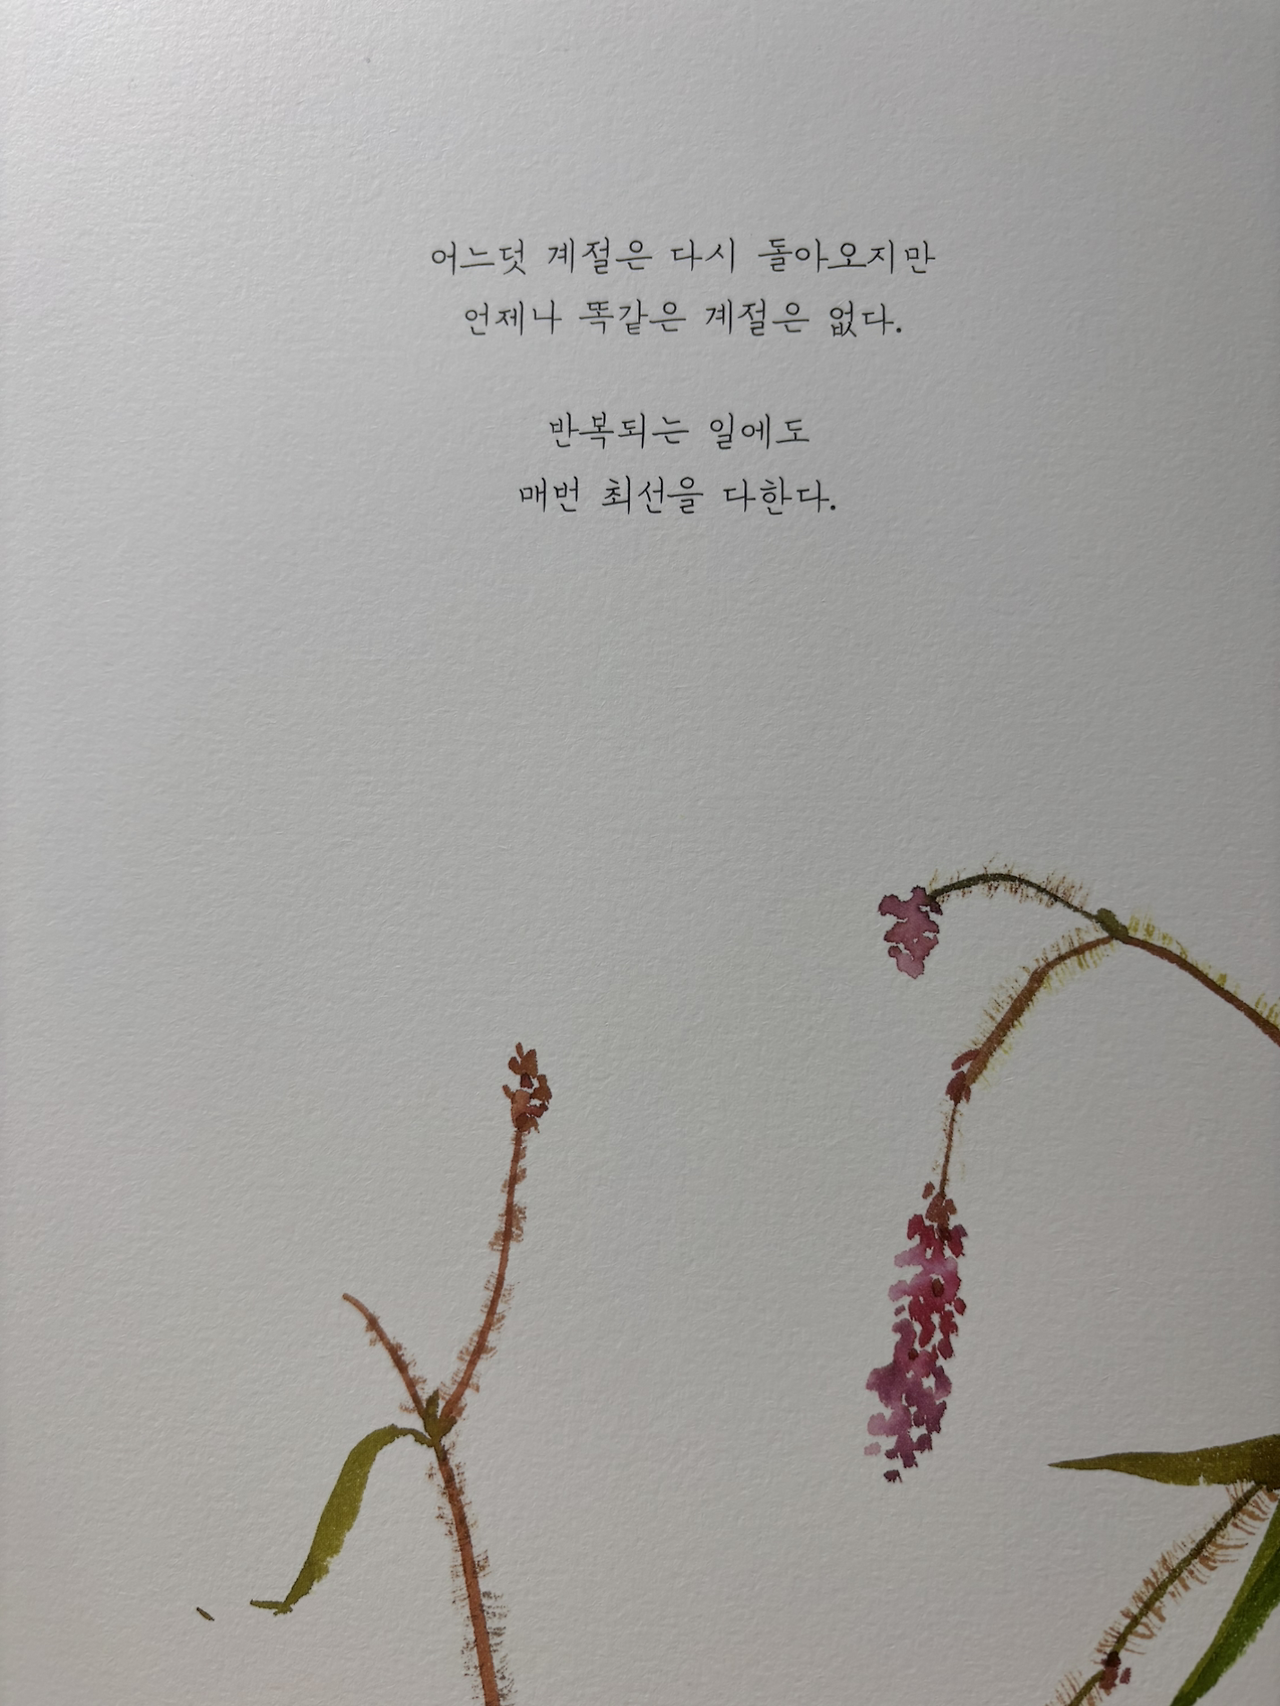 어느덧 계절은 다시 돌아오지만
언제나 똑같은 계절은 없다.
반복되는 일에도
매번 최선을 다한다.